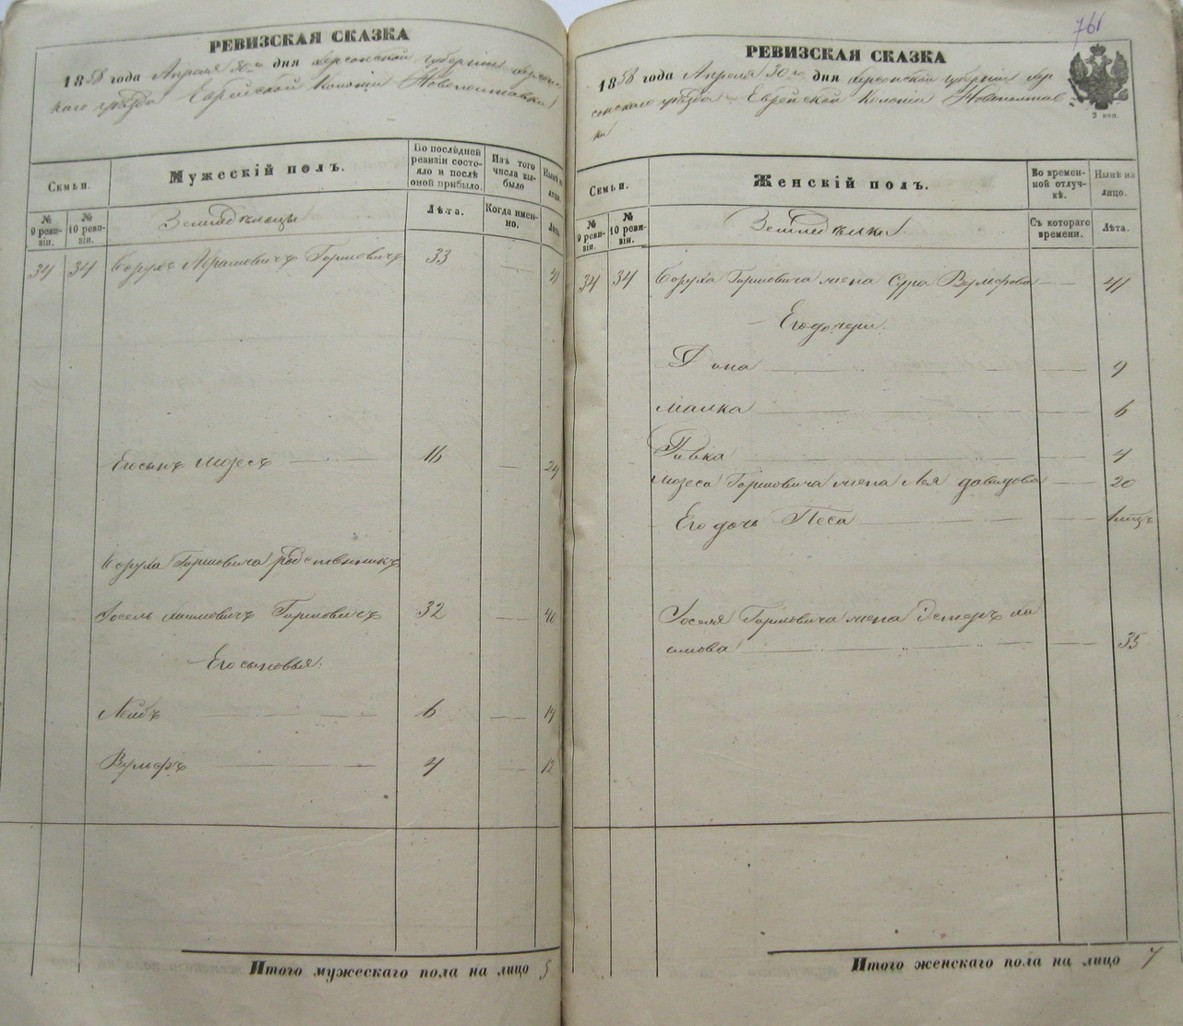 РЕВИЗСКАЯ СКАЗКА
1858 года Апреля 30го дня Херсонской губернiи Херсон-
скаго уѣзда Еврейской Колонiи Новополтавки
Семьи.
Мужескiй полъ.
По послѣдней ревизiи состояло и послѣ оной прибыло.
Изъ того числа выбыло
Нынѣ на лицо.
№ 9 ревизiи.
№ 10 ревизiи.
Земледѣльцы
Лѣта.
Когда именно.
Лѣта.
34 34 Борухъ Абрамовичъ Горшовичъ 33
Его сынъ Мозесъ 16 24
Боруха Горшовича родственникъ
Іосель Горшовичъ 32 40
Его сыновья:
Лейбъ 6 14
Вулфъ 4 12
Итого мужескаго пола на лицо 5
761
РЕВИЗСКАЯ СКАЗКА
1858 года Апреля 30го дня Херсонской губернiи Хер-
сонскаго уѣзда Еврейской Колонiи Новополтав-
ки
2 коп.
Семьи.
Женскiй полъ.
Во временной отлучкѣ.
Нынѣ на лицо.
№ 9 ревизiи.
№ 10 ревизiи.
Земледѣлки
Съ котораго времени.
Лѣта.
34 34 Боруха Горшовича жена Сура 41
Его дочери:
9
Малка 6
Ривка 4
Мозеса Горшовича жена Лея Давидова 20
Его дочь Песа
Іоселя Горшовича жена Эстеръ Ха
имова 35
Итого женскаго пола на лицо 7